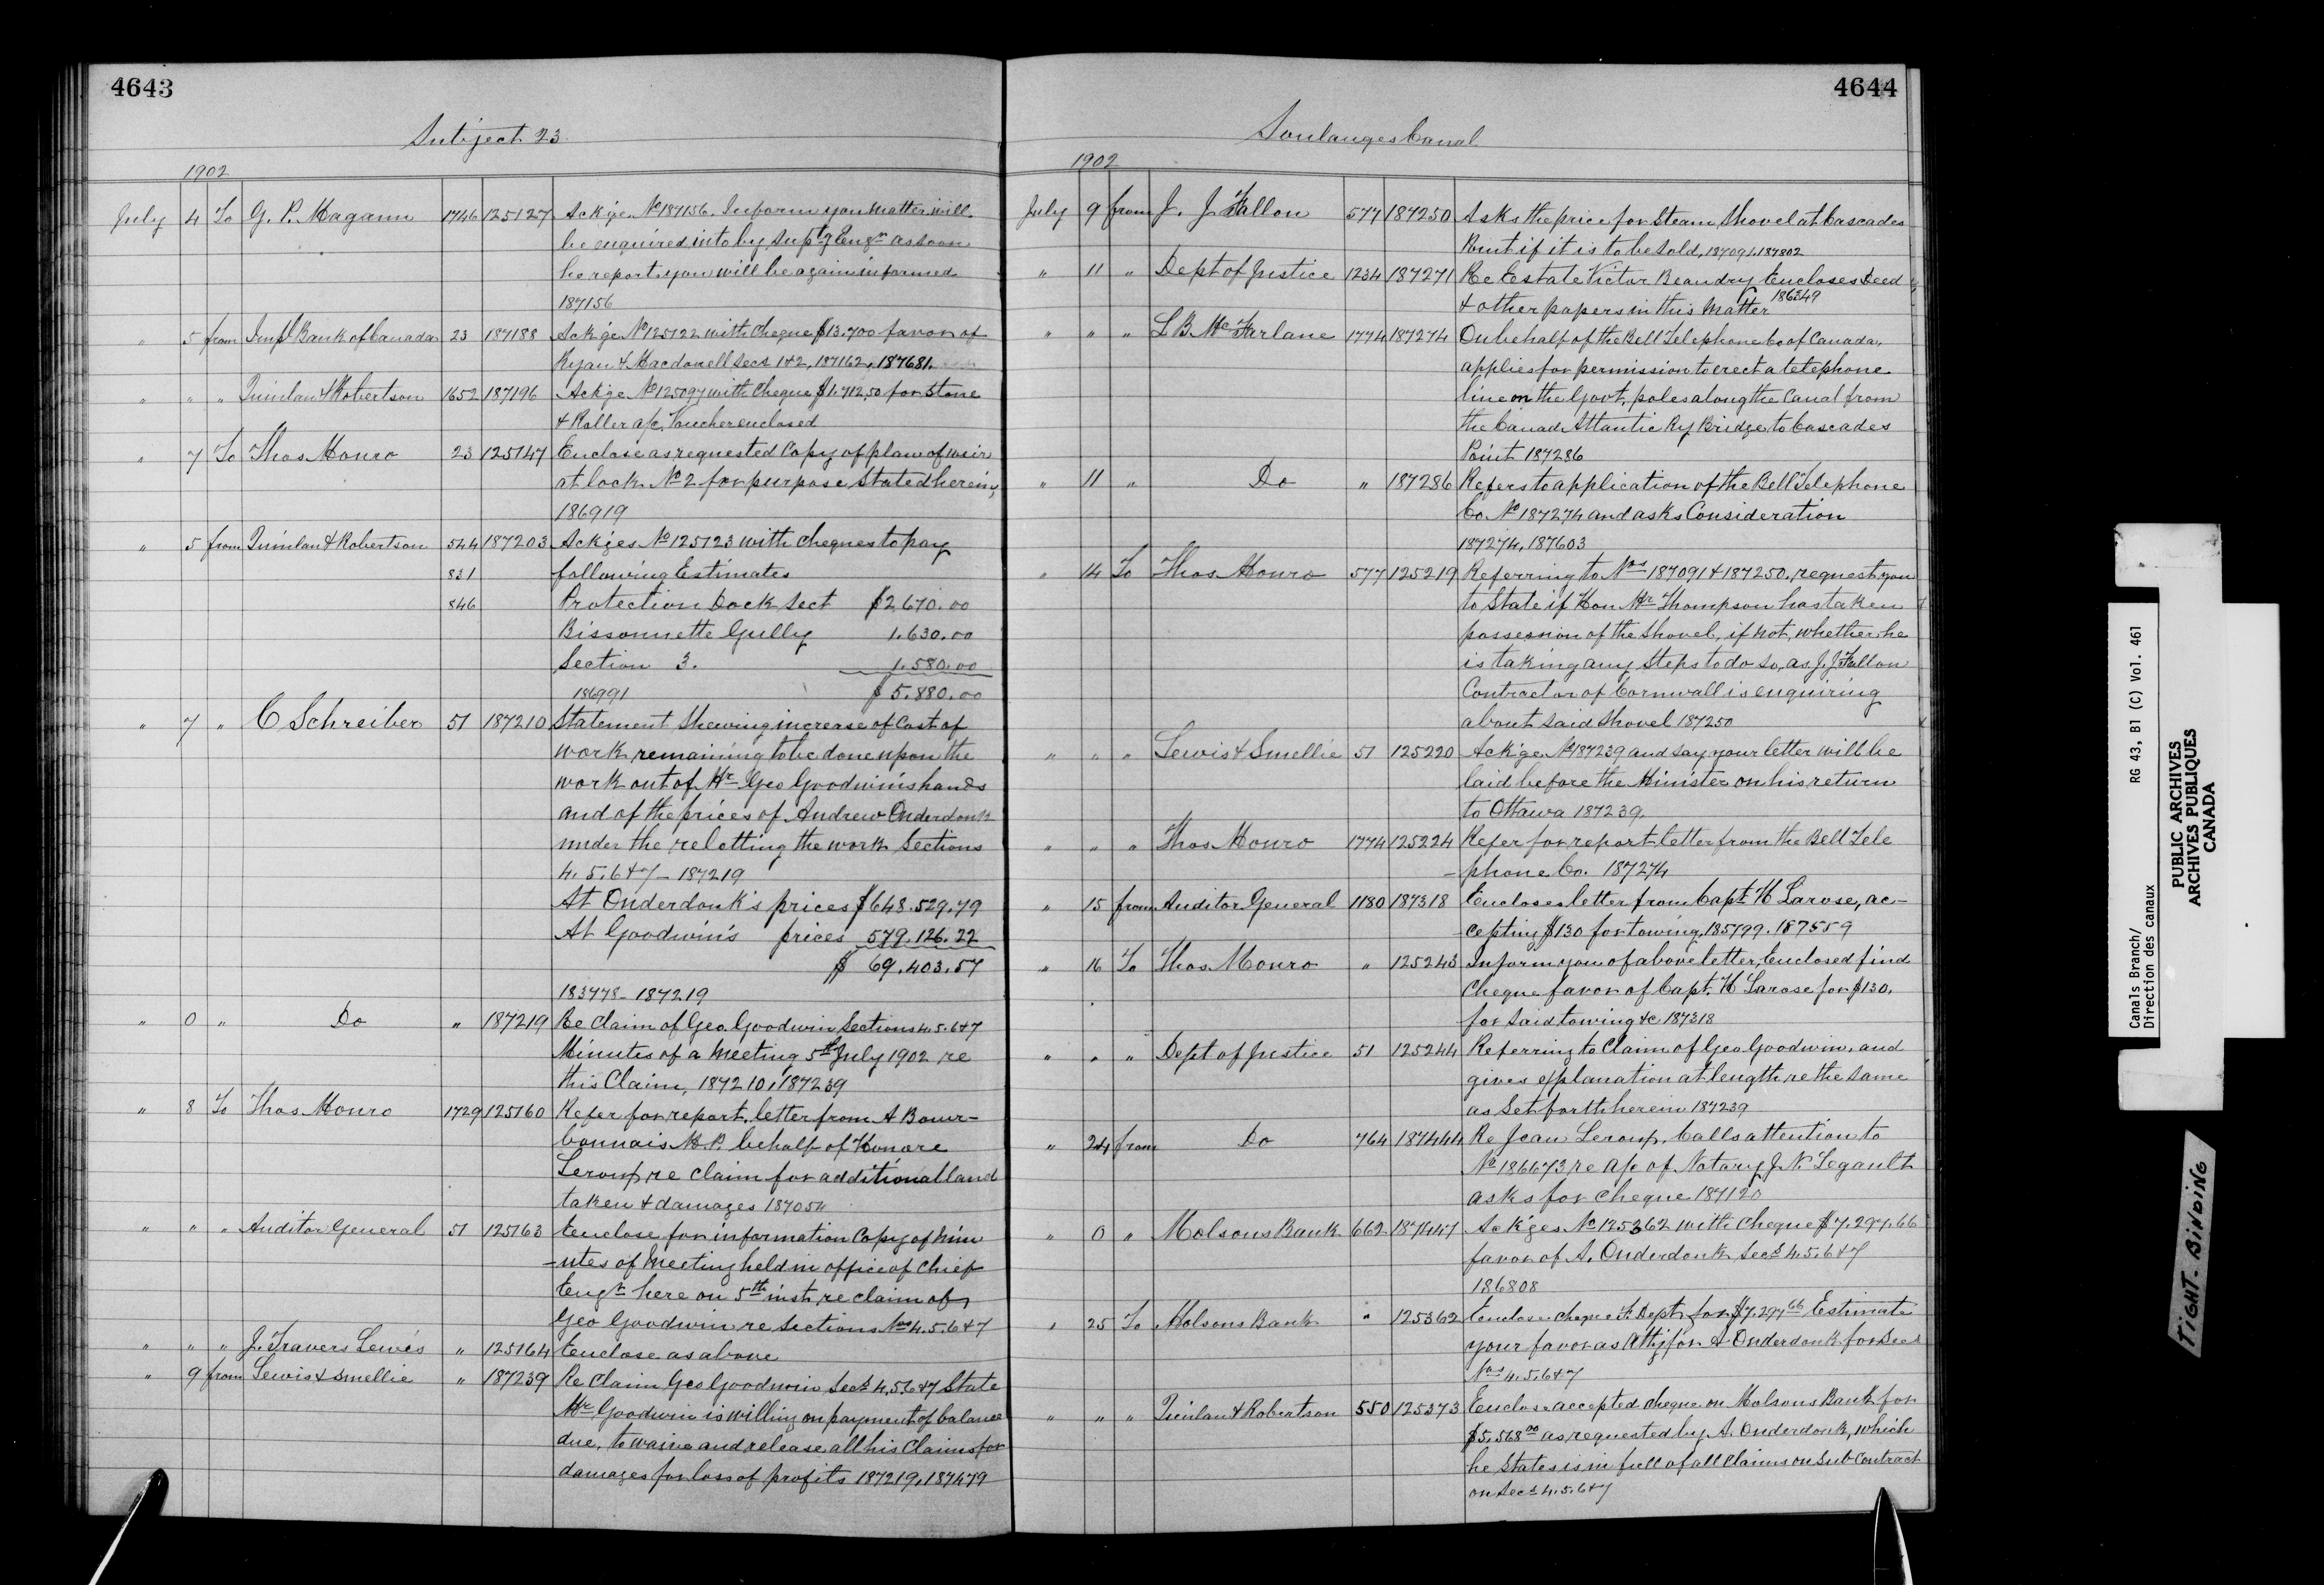 4643
Subject 23
1902
July 4 To G. P. Magann 1746 125127 Ackge. No 187156. Inform you matter will
be enquired into by Suptg Engr as soon
he reports you will be again informed
187156
" 5 from Impl Bank of Canada 23 187188 Ackge No 125122 with Cheque $13.700 favor of
Ryan & Macdonell Secs 1&2, 187162, 187681.
" " " Quinlan & Robertson 1652 187196 Ackge No 125097 with Cheque $1.712,50 for Stone
& Roller a/c, Voucher enclosed
" 7 To Thos Monro 23 125147 Enclose as requested Copy of plan of weir
at lock No 2 for purpose Stated herein,
186919
" 5 from Quinlan & Robertson 544 187203 Ackges No 125123 with Cheques to pay
831 following Estimates
846 Protection Dock Sect $2,670.00
Bissonnette Gully 1.630.00
Section 3. 1.580.00
186991 $ 5.880.00
" 7 " C Schreiber 51 187210 Statement Shewing increase of Cost of
work remaining to be done upon the
work out of Mr Geo Goodwin's hands
and of the prices of Andrew Onderdonk
under the reletting the work Sections
4. 5. 6 & 7 - 187219
At Onderdonk's prices $648.529.79
At Goodwin's prices 579.126.22
$ 69.403.57
183778 - 187219
" 0 " Do " 187219 Re Claim of Geo. Goodwin Sections 4. 5. 6 & 7
Minutes of a Meeting 5th July 1902 re
this Claim, 187210, 187239
" 8 To Thos Monro 1729 125160 Refer for report, letter from A Bour-
bonnais M.P. behalf of Honore
Leroux re claim for additional land
taken & damages 187054
" " " Auditor General 51 125163 Enclose for information Copy of Min
-utes of Meeting held in office of Chief
Engr here on 5th inst, re claim of
Geo Goodwin re Sections Nos 4. 5. 6 & 7
" " " J. Travers Lewis " 125164 Enclose as above
" 9 from Lewis & Smellie " 187239 Re Claim Geo Goodwin Secs 4, 5, 6 & 7 State
Mr Goodwin is willing on payment of balance
due, to waive and release all his Claims for
damages for loss of profits 187219, 187479
4644
Soulanges Canal
1902
July 9 from J. J. Fallon 577 187250 Asks the price for Steam Shovel at Cascades
Point if it is to be Sold, 187091, 187802
" 11 " Dept of Justice 1234 187271 Re Estate Victor Beaudry Encloses Deed
& other papers in this Matter 186349
" " " L B. McFarlane 1774 187274 On behalf of the Bell Telephone Co of Canada,
applies for permission to erect a telephone
line on the Govt, poles along the Canal from
the Canad Atlantic Ry Bridge to Cascades
Point 187286
" 11 " Do " 187286 Refers to application of the Bell Telephone
Co. No 187274 and asks Consideration
187274, 187603
" 14 To Thos Monro 577 125219 Referring to Nos 187091 & 187250, request you
to State if Hon Mr Thompson has taken
possession of the Shovel, if not, whether he
is taking any Steps to do so, as J. J. Fallon
Contractor of Cornwall is enquiring
about Said Shovel 187250
" " " Lewis & Smellie 51 125220 Ackge No 187239 and say your letter will be
laid before the Minister on his return
to Ottawa 187239.
" " " Thos Monro 1774 125224 Refer for report letter from the Bell Tele
-phone Co. 187274
" 15 from Auditor General 1180 187318 Encloses letter from Capt. H Larose, ac-
cepting $130 for towing, 185799. 187559
" 16 To Thos Monro " 125243 Inform you of above letter, Enclosed find
Cheque favor of Capt. H Larose for $130.
for Said towing &c 187318
" " " Dept of Justice 51 125244 Referring to Claim of Geo Goodwin, and
gives explanation at length re the Same
as Set forth herein 187239
" 24 from Do 764 187444 Re Jean Leroux, Calls attention to
No 186673 re a/c of Notary J. N. Legault
asks for Cheque 187120
" 0 " Molsons Bank 662 187447 Ackges No 125362 with Cheque $7.297.66
favor of A. Onderdonk Secs 4. 5. 6 & 7
186808
" 25 To Molsons Bank " 125362 Enclose Cheque F. Dept, for $7.297 66 Estimate
your favor as Atty for A Onderdonk for Sec
Nos 4. 5. 6 & 7
" " " Quinlan & Robertson 550 125373 Enclose accepted cheque on Molsons Bank for
$5.568 00 as requested by A. Onderdonk, which
he States is in full of all Claims on Sub Contract
on Secs 4. 5. 6 & 7
Canals Branch/ RG 43, B1 (C) Vol. 461
Direction des canaux
PUBLIC ARCHIVES
ARCHIVES PUBLIQUES
CANADA
TIGHT. BINDING